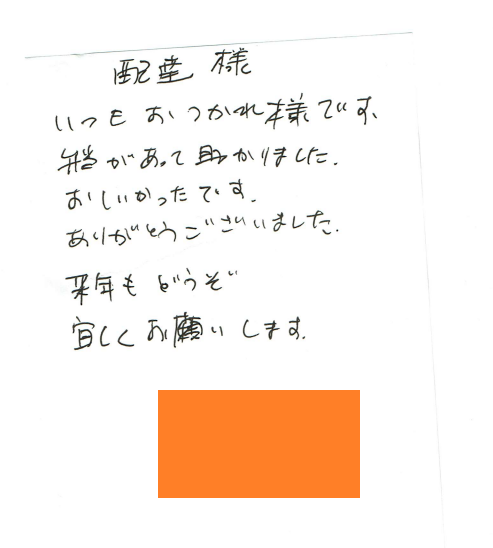 配達 様
いつも おつかれ様です、
弁当があって助かりました.
おしいかったです.
ありがとうございいました.
来年も どうぞ
宜しくお願いします.